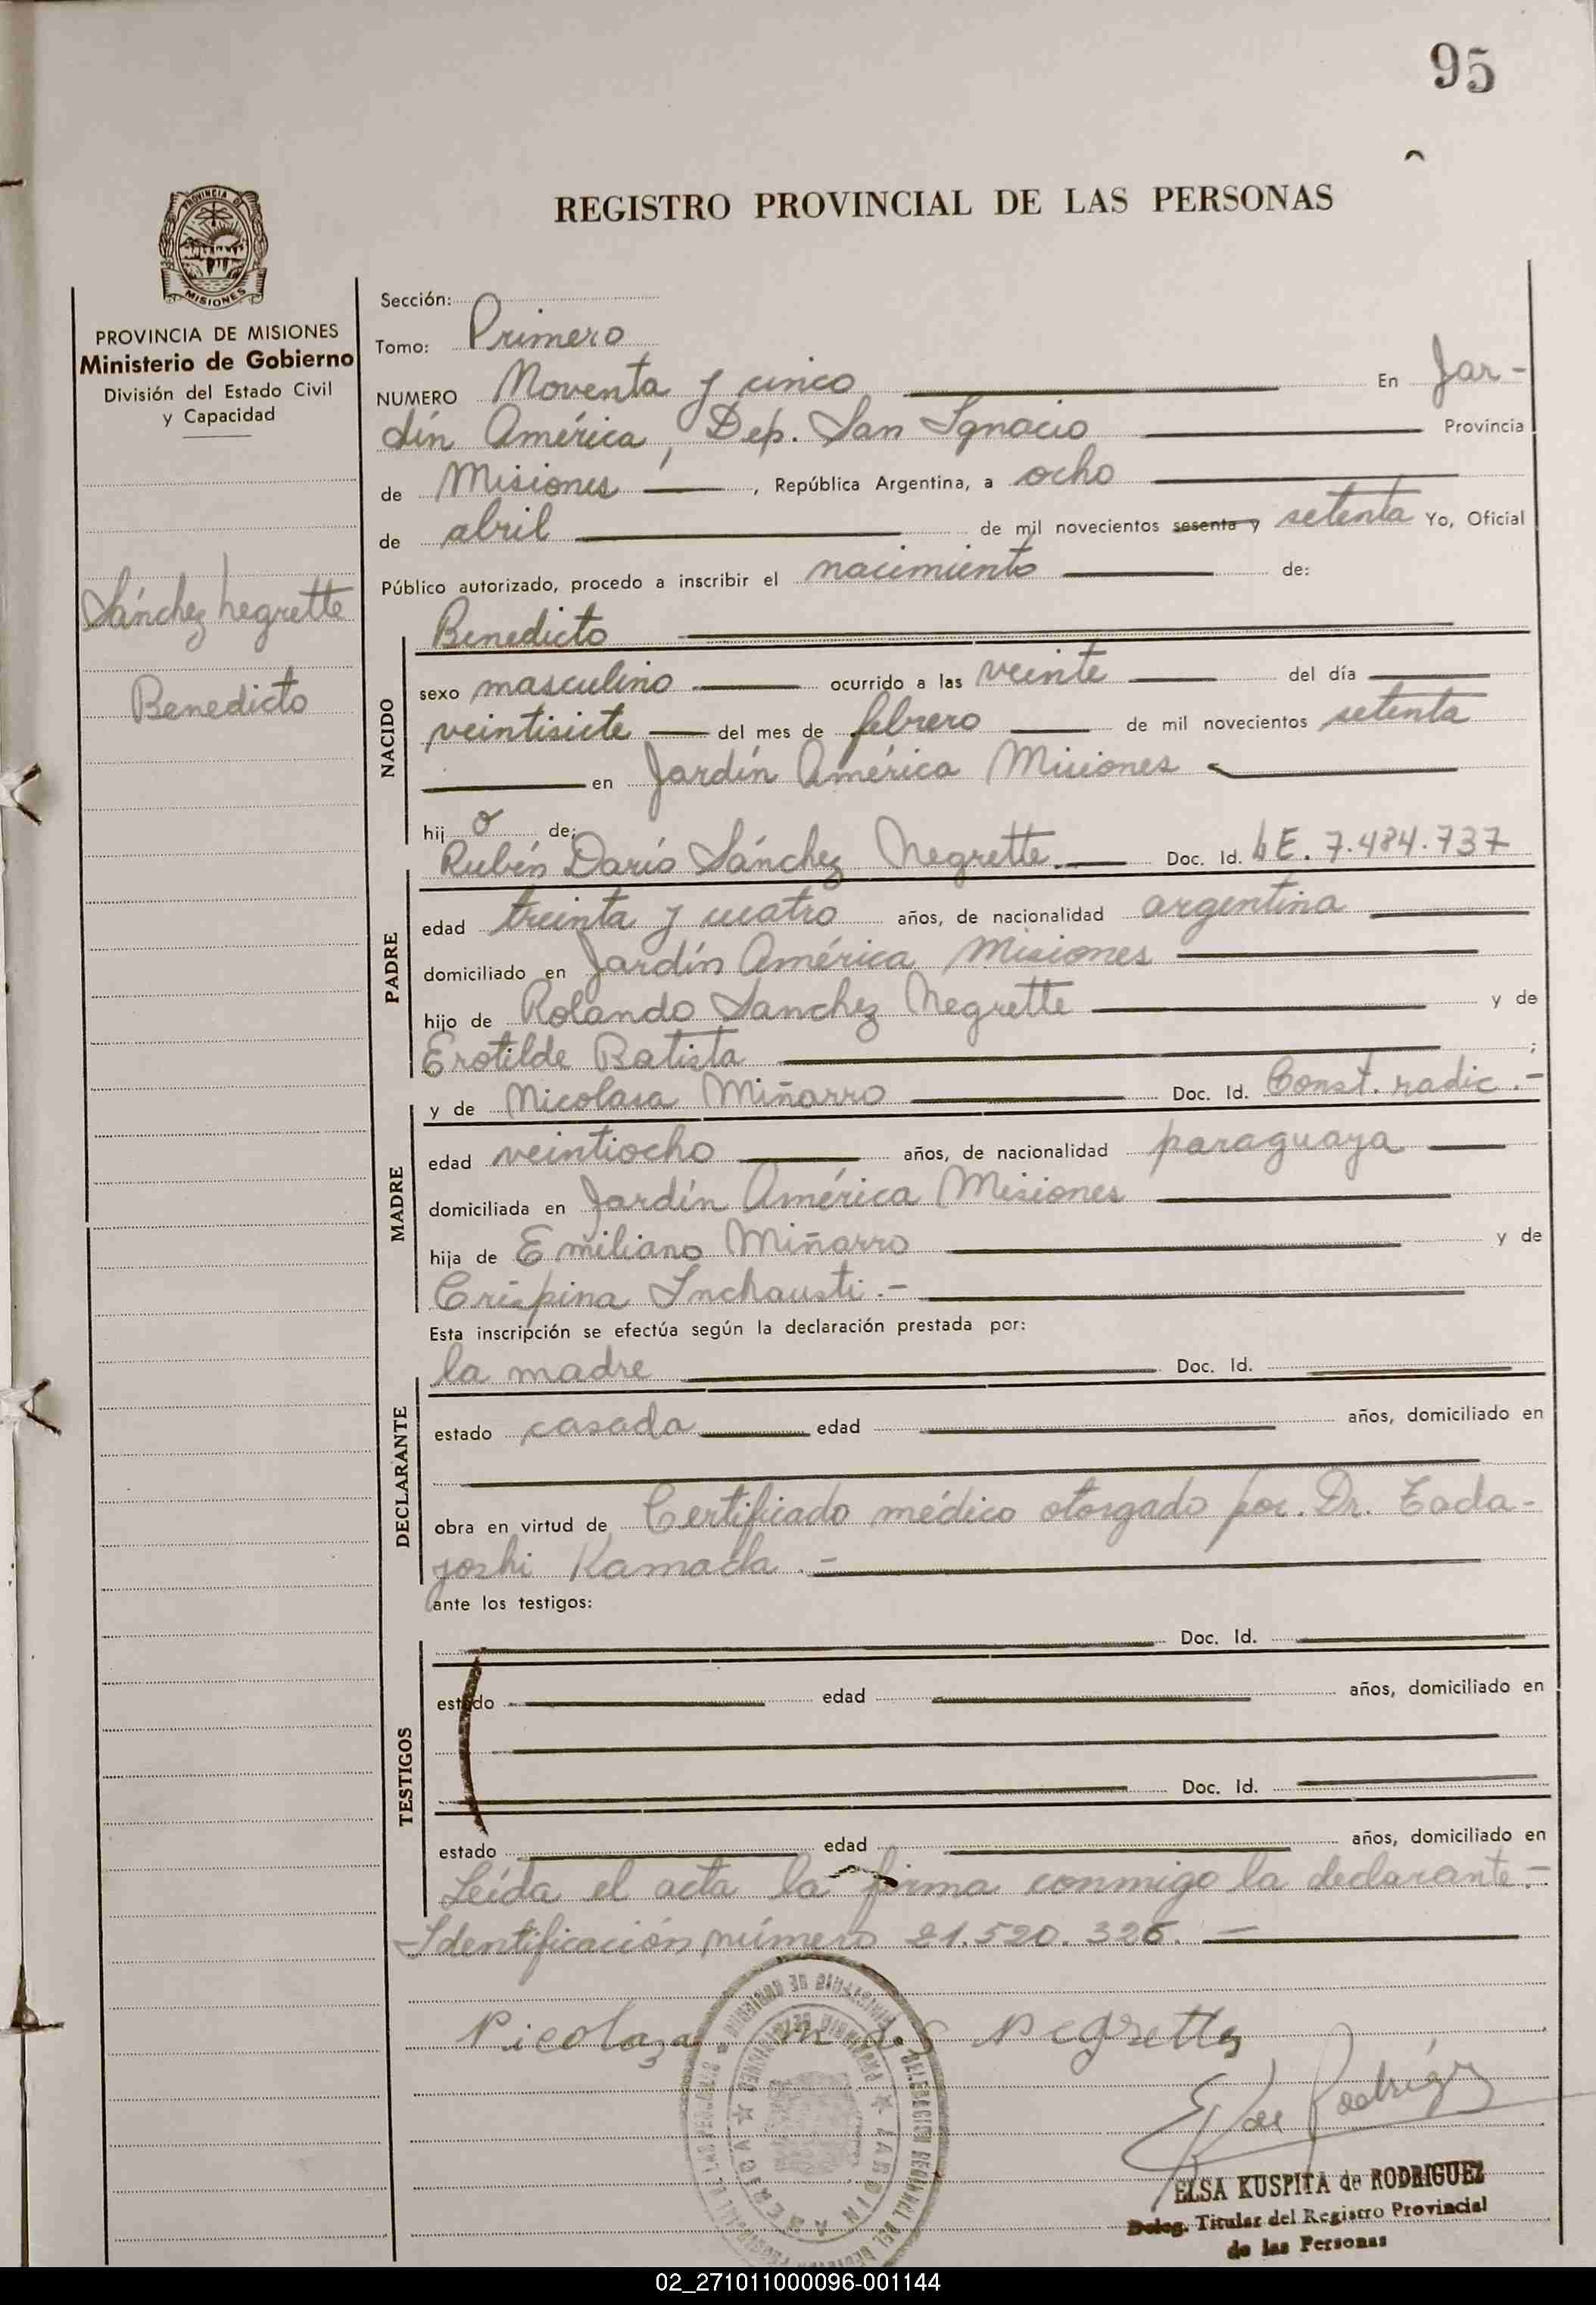 95
REGISTRO PROVINCIAL DE LAS PERSONAS
PROVINCIA DE
MISIONES
PROVINCIA DE MISIONES
Ministerio de Gobierno
División del Estado Civil
y Capacidad
Sánchez Negrette
Benedicto
Sección:
Tomo: Primero
NUMERO Noventa y cinco En Jar-
dín América, Dep. San Ignacio Provincia
de Misiones, República Argentina, a ocho
de abril de mil novecientos sesenta y setenta Yo, Oficial
Público autorizado, procedo a inscribir el nacimiento de:
Benedicto
NACIDO
sexo masculino ocurrido a las veinte del día
veintisiete del mes de febrero de mil novecientos setenta
en Jardín América Misiones
hij o de:
Rubén Darío Sánchez Negrette. Doc. Id. LE. 7.484.737
PADRE
edad treinta y cuatro años, de nacionalidad argentina
domiciliado en Jardín América Misiones
hijo de Rolando Sanchez Negrette y de
Erotilde Batista ;
y de Nicolasa Miñarro Doc. Id. Const. radic.-
MADRE
edad veintiocho años, de nacionalidad paraguaya
domiciliada en Jardín América Misiones
hija de Emiliano Miñarro y de
Crispina Inchausti.-
Esta inscripción se efectúa según la declaración prestada por:
la madre Doc. Id.
DECLARANTE
estado casada edad años, domiciliado en
obra en virtud de Certificado médico otorgado por. Dr. Tada-
yoshi Kamada.-
ante los testigos:
Doc. Id.
TESTIGOS
estado edad años, domiciliado en
Doc. Id.
estado edad años, domiciliado en
Leída el acta la firma conmigo la declarante.-
Identificación número 21.520.326.-
Nicolaza m de S Negrette
E K de Rodríguez
JARDIN AMERICA
ELSA KUSPITA de RODRIGUEZ
Deleg. Titular del Registro Provincial
de las Personas
02_271011000096-001144